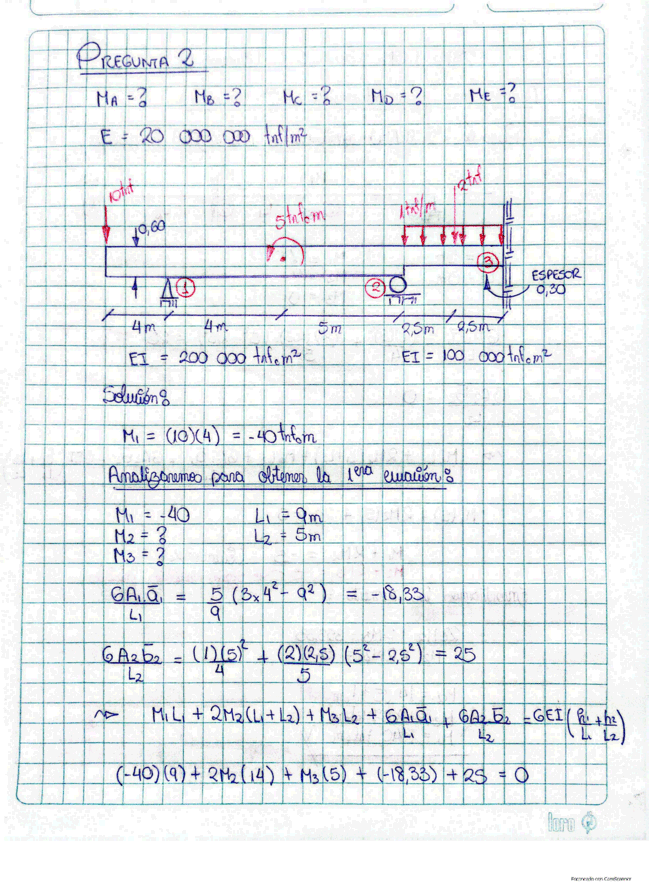 PREGUNTA 2
MA = ? MB = ? MC = ? MD = ? ME = ?
E = 20 000 000 tnf/m²
10tnf 5tnf.m 1tnf/m 2tnf
0,60
1 2 3 ESPESOR
0,30
4m 4m 5m 2,5m 2,5m
EI = 200 000 tnf.m² EI = 100 000 tnf.m²
Solución:
M1 = (10)(4) = -40 tnf.m
Analizaremos para obtener la 1era ecuación:
M1 = -40 L1 = 9m
M2 = ? L2 = 5m
M3 = ?
6A1.ā1/L1 = 5/9 (3x4² - 9²) = -18,33
6A2 b̄2/L2 = (1)(5)²/4 + (2)(2,5)/5 (5² - 2,5²) = 25
M1L1 + 2M2(L1+L2) + M3L2 + 6A1ā1/L1 + 6A2 b̄2/L2 = 6EI(h1/L1 + h2/L2)
(-40)(9) + 2M2(14) + M3(5) + (-18,33) + 25 = 0
loro
Escaneado con CamScanner